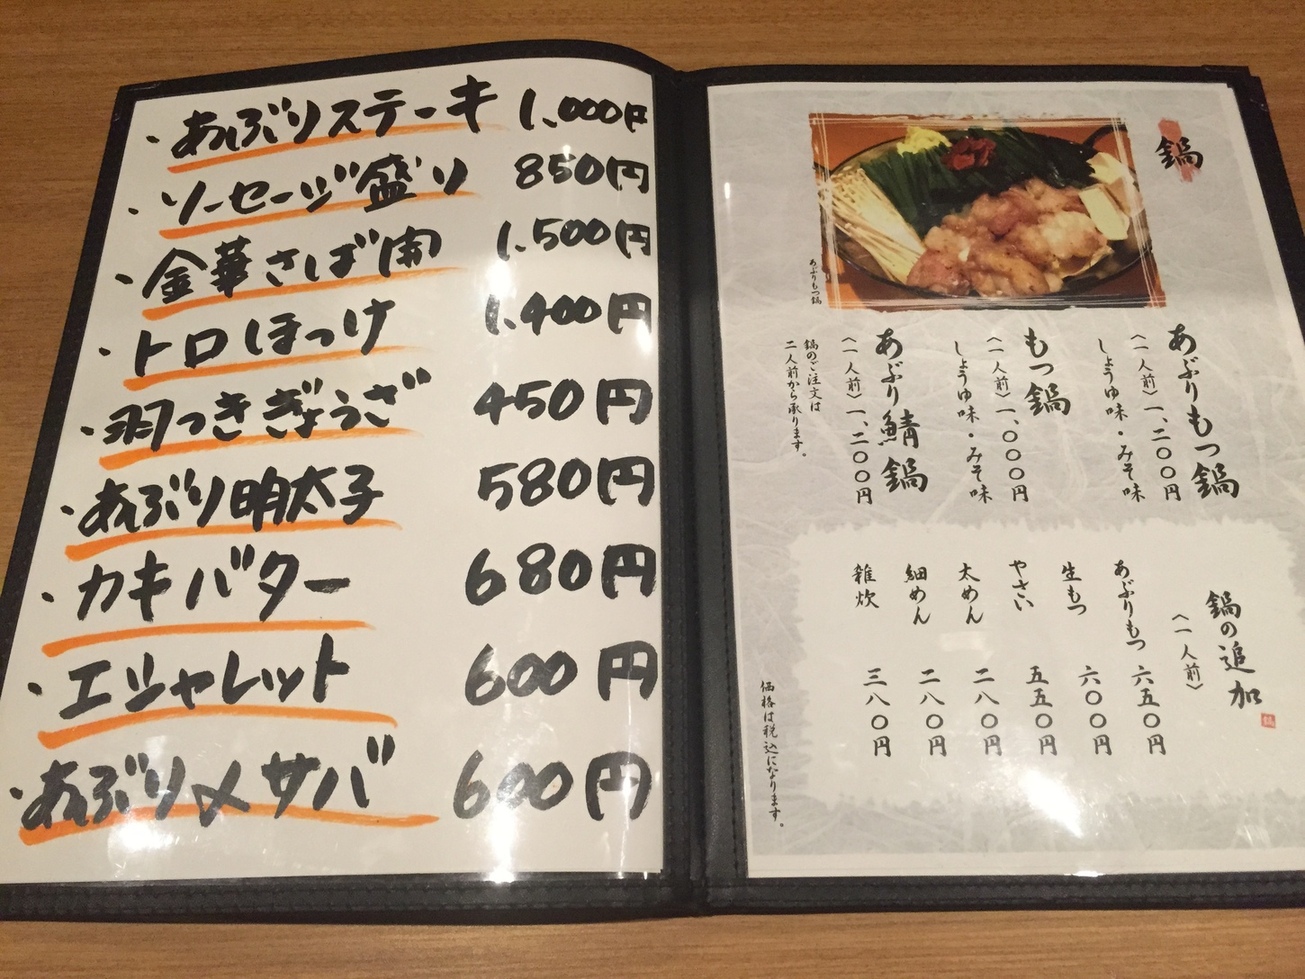 ・あぶりステーキ 1.000円
・ソーセージ盛り 850円
・金華さば開 1.500円
・トロほっけ 1.400円
・羽つきぎょうざ 450円
・あぶり明太子 580円
・カキバター 680円
・エシャレット 600円
・あぶり〆サバ 600円
鍋
あぶりもつ鍋
あぶりもつ鍋
〈一人前〉一、二〇〇円
しょうゆ味・みそ味
もつ鍋
〈一人前〉一、〇〇〇円
しょうゆ味・みそ味
あぶり鯖鍋
〈一人前〉一、二〇〇円
鍋のご注文は
二人前から承ります。
鍋の追加
〈一人前〉
あぶりもつ 六五〇円
生もつ 六〇〇円
やさい 五五〇円
太めん 二八〇円
細めん 二八〇円
雑炊 三八〇円
価格は税込になります。